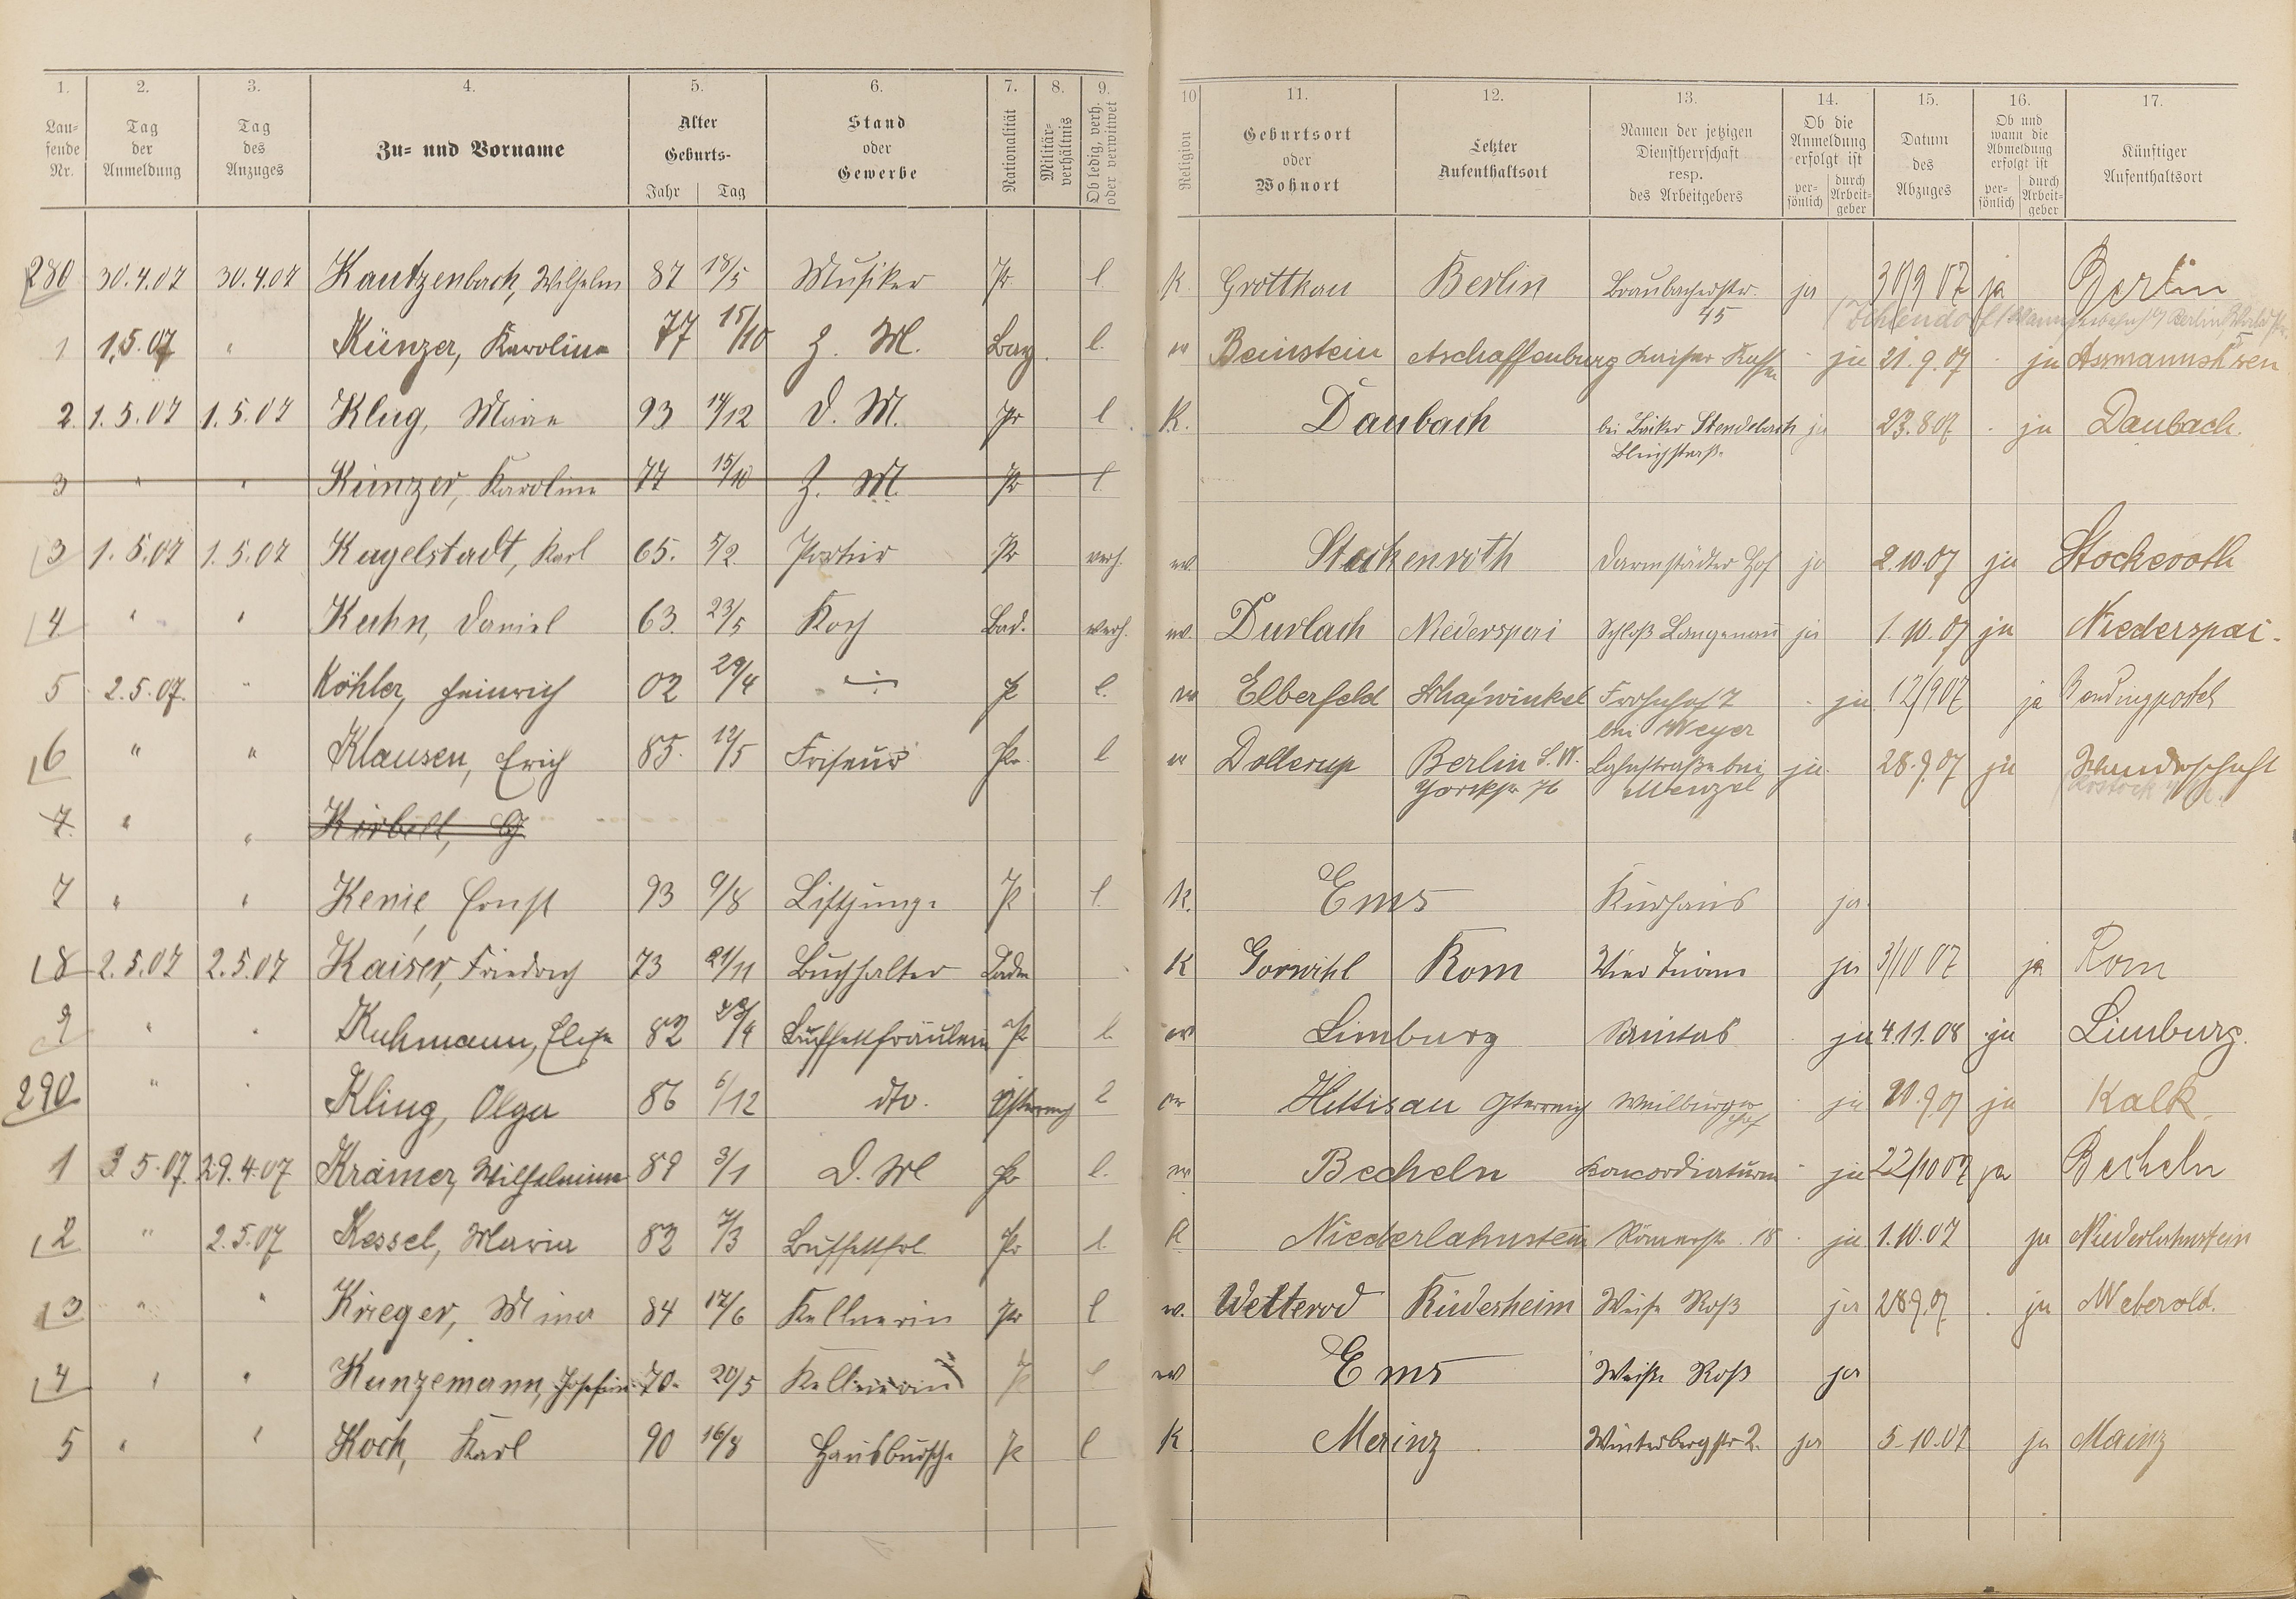 1. 2. 3. 4. 5. 6. 7. 8. 9. 10 11. 12. 13. 14. 15. 16. 17.
Lau-fende Nr. Tag der Anmeldung Tag des Anzuges Zu- und Vorname Alter Geburts- Jahr Tag Stand oder Gewerbe Nationalität Militär-verhältnis Ob ledig, verh. oder verwitwet Religion Geburtsort oder Wohnort Letzter Aufenthaltsort Namen der jetzigen Dienstherrschaft resp. des Arbeitgebers Ob die Anmeldung erfolgt ist per-sönlich durch Arbeit-geber Datum des Abzuges Ob und wann die Abmeldung erfolgt ist per-sönlich durch Arbeit-geber Künftiger Aufenthaltsort
280 30.4.07 30.4.07 Kautzenbach, Wilhelm 87 18/5 Musiker Pr. l K. Grottkau Berlin Braubacherstr. 45 ja 30/9 07 ja Berlin
1 1.5.07 " Künzer, Karoline 77 15/10 Z. M. Bay. l. ev Beinstein Aschaffenburg ja 21.9.07 ja
2. 1.5.07 1.5.07 Klug, 93 14/12 D. M. Pr l K. Daubach bei Bäcker Stendebach Bleichstraße ja 23.8.07. ja Daubach.
3 " " Künzer, Karoline 77 15/10 Z. M. Pr l
3 1.5.07 1.5.07 Kagelstadt, Karl 65. 5/2. Portier Pr verh. ev. Darmstädter Hof ja 2.10.07 ja
4 " " Kuhn, Daniel 63. 23/5 Koch Bad. verh. ev. Durlach Niederspai Schloß Langenau ja 1.10.07 ja Niederspai.
5 2.5.07. " Köhler, Heinrich 02 29/4 Pr l. ev Elberfeld ja 12/9 07 ja
6 " " Klausen, Erich 85. 12/5 Friseur Pr. l ev Dollerup Berlin S.W. Yorkstr 76 Lahnstraße bei Menzel ja. 28.9.07 ja
7. " " Kirbell, G
7 " " Kenie, Ernst 93 9/8 Liftjunge Pr l. K. Ems Kurhaus ja.
8 2.5.07 2.5.07 Kaiser, Friedrich 73 21/11 Buchhalter Baden K Rom Vier Türme ja 3/10 07 ja Rom
9 " " Kuhmann, Elise 82 Buffettfräulein Pr l. ev Limburg Sanitas ja 4.11.08 ja Limburg.
290 " " Kling, Olga 86 6/12 dto. Österreich l ev Hittisau Österreich Weilburger Hof ja 20.9.07 ja Kalk.
1 3 5.07. 29.4.07 Krämer, Wilhelmine 89 3/1 D. M Pr l. ev Becheln Konkordiaturm ja 22/10 07 ja Becheln
2 " 2.5.07 Kessel, Maria 82 7/3 Buffettfrl Pr l. K Niederlahnstein Römerstr. 18 ja 1.10.07 ja Niederlahnstein
3 " " Krieger, Mina 84 17/6 Kellnerin Pr l ev. Rüdesheim Weiße Roß ja 28.9.07. ja
4 " " Kunzemann, Josefine 70. 20/5 Kellnerin Pr l ev Ems Weiße Roß ja
5 " " Koch, Karl 90 16/8 Hausbursche Pr l K Mainz Winterbergstr 2. ja 5.10.07 ja Mainz